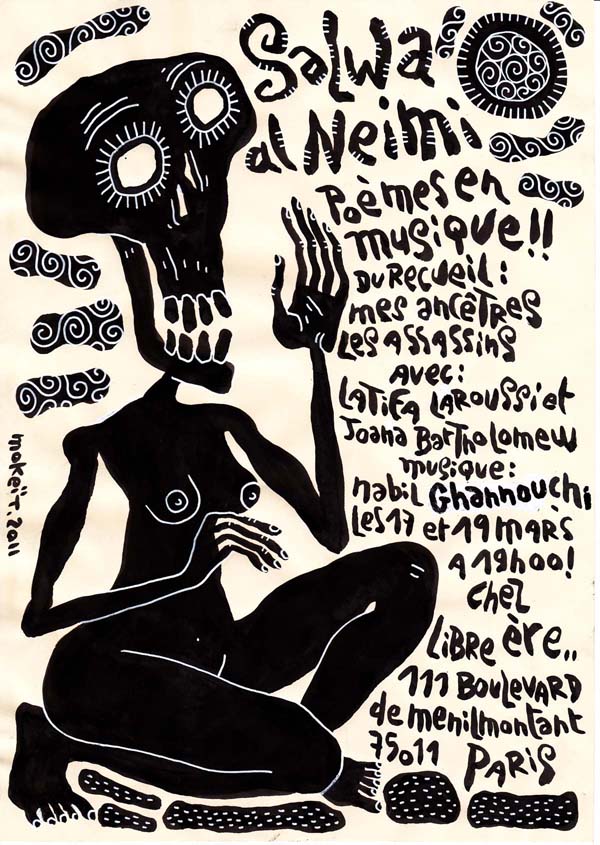 Salwa
al Neimi
Poèmes en
musique!!
Du Recueil:
mes ancêtres
Les assassins
avec:
Latifa Laroussi et
Joana Bartholomew
musique:
nabil Ghannouchi
Les 17 et 19 mars
A 19h00!
chez
Libre ère..
111 Boulevard
de menilmontant
75011
Paris
mokeït.2011